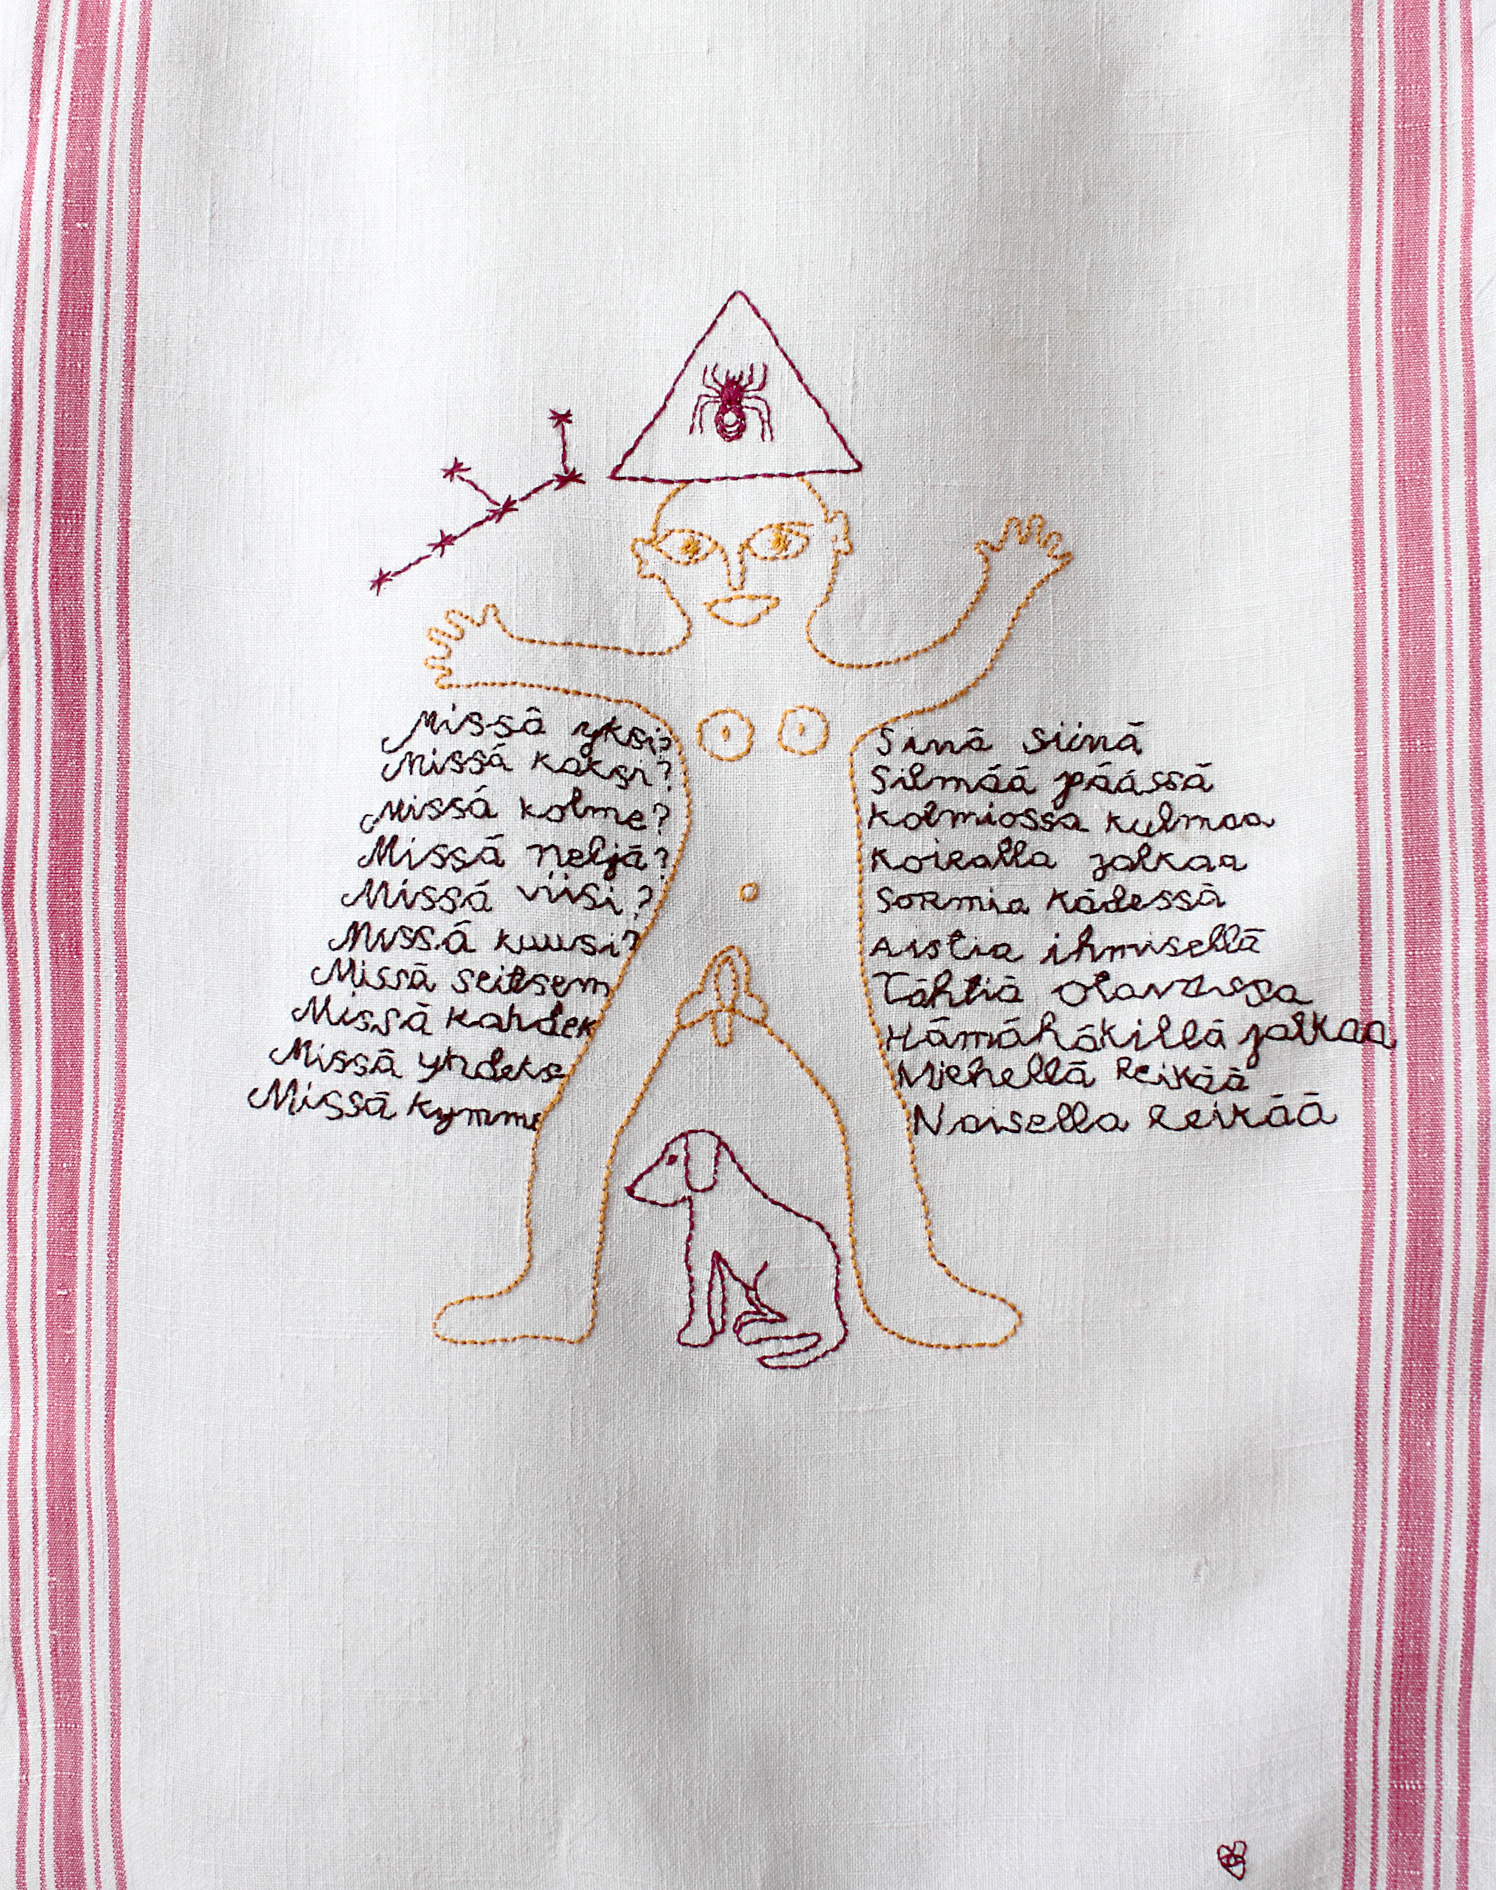 Missä yksi? Sinä siinä
Missä kaksi? Silmää päässä
Missä kolme? Kolmiossa kulmaa
Missä neljä? Koiralla jalkaa
Missä viisi? Sormia kädessä
Missä kuusi? Aistia ihmisellä
Missä seitsem Tähtiä Otavassa
Missä kahdek Hämähäkillä jalkaa
Missä yhdeks Miehellä Reikää
Missä kymme Naisella reikää